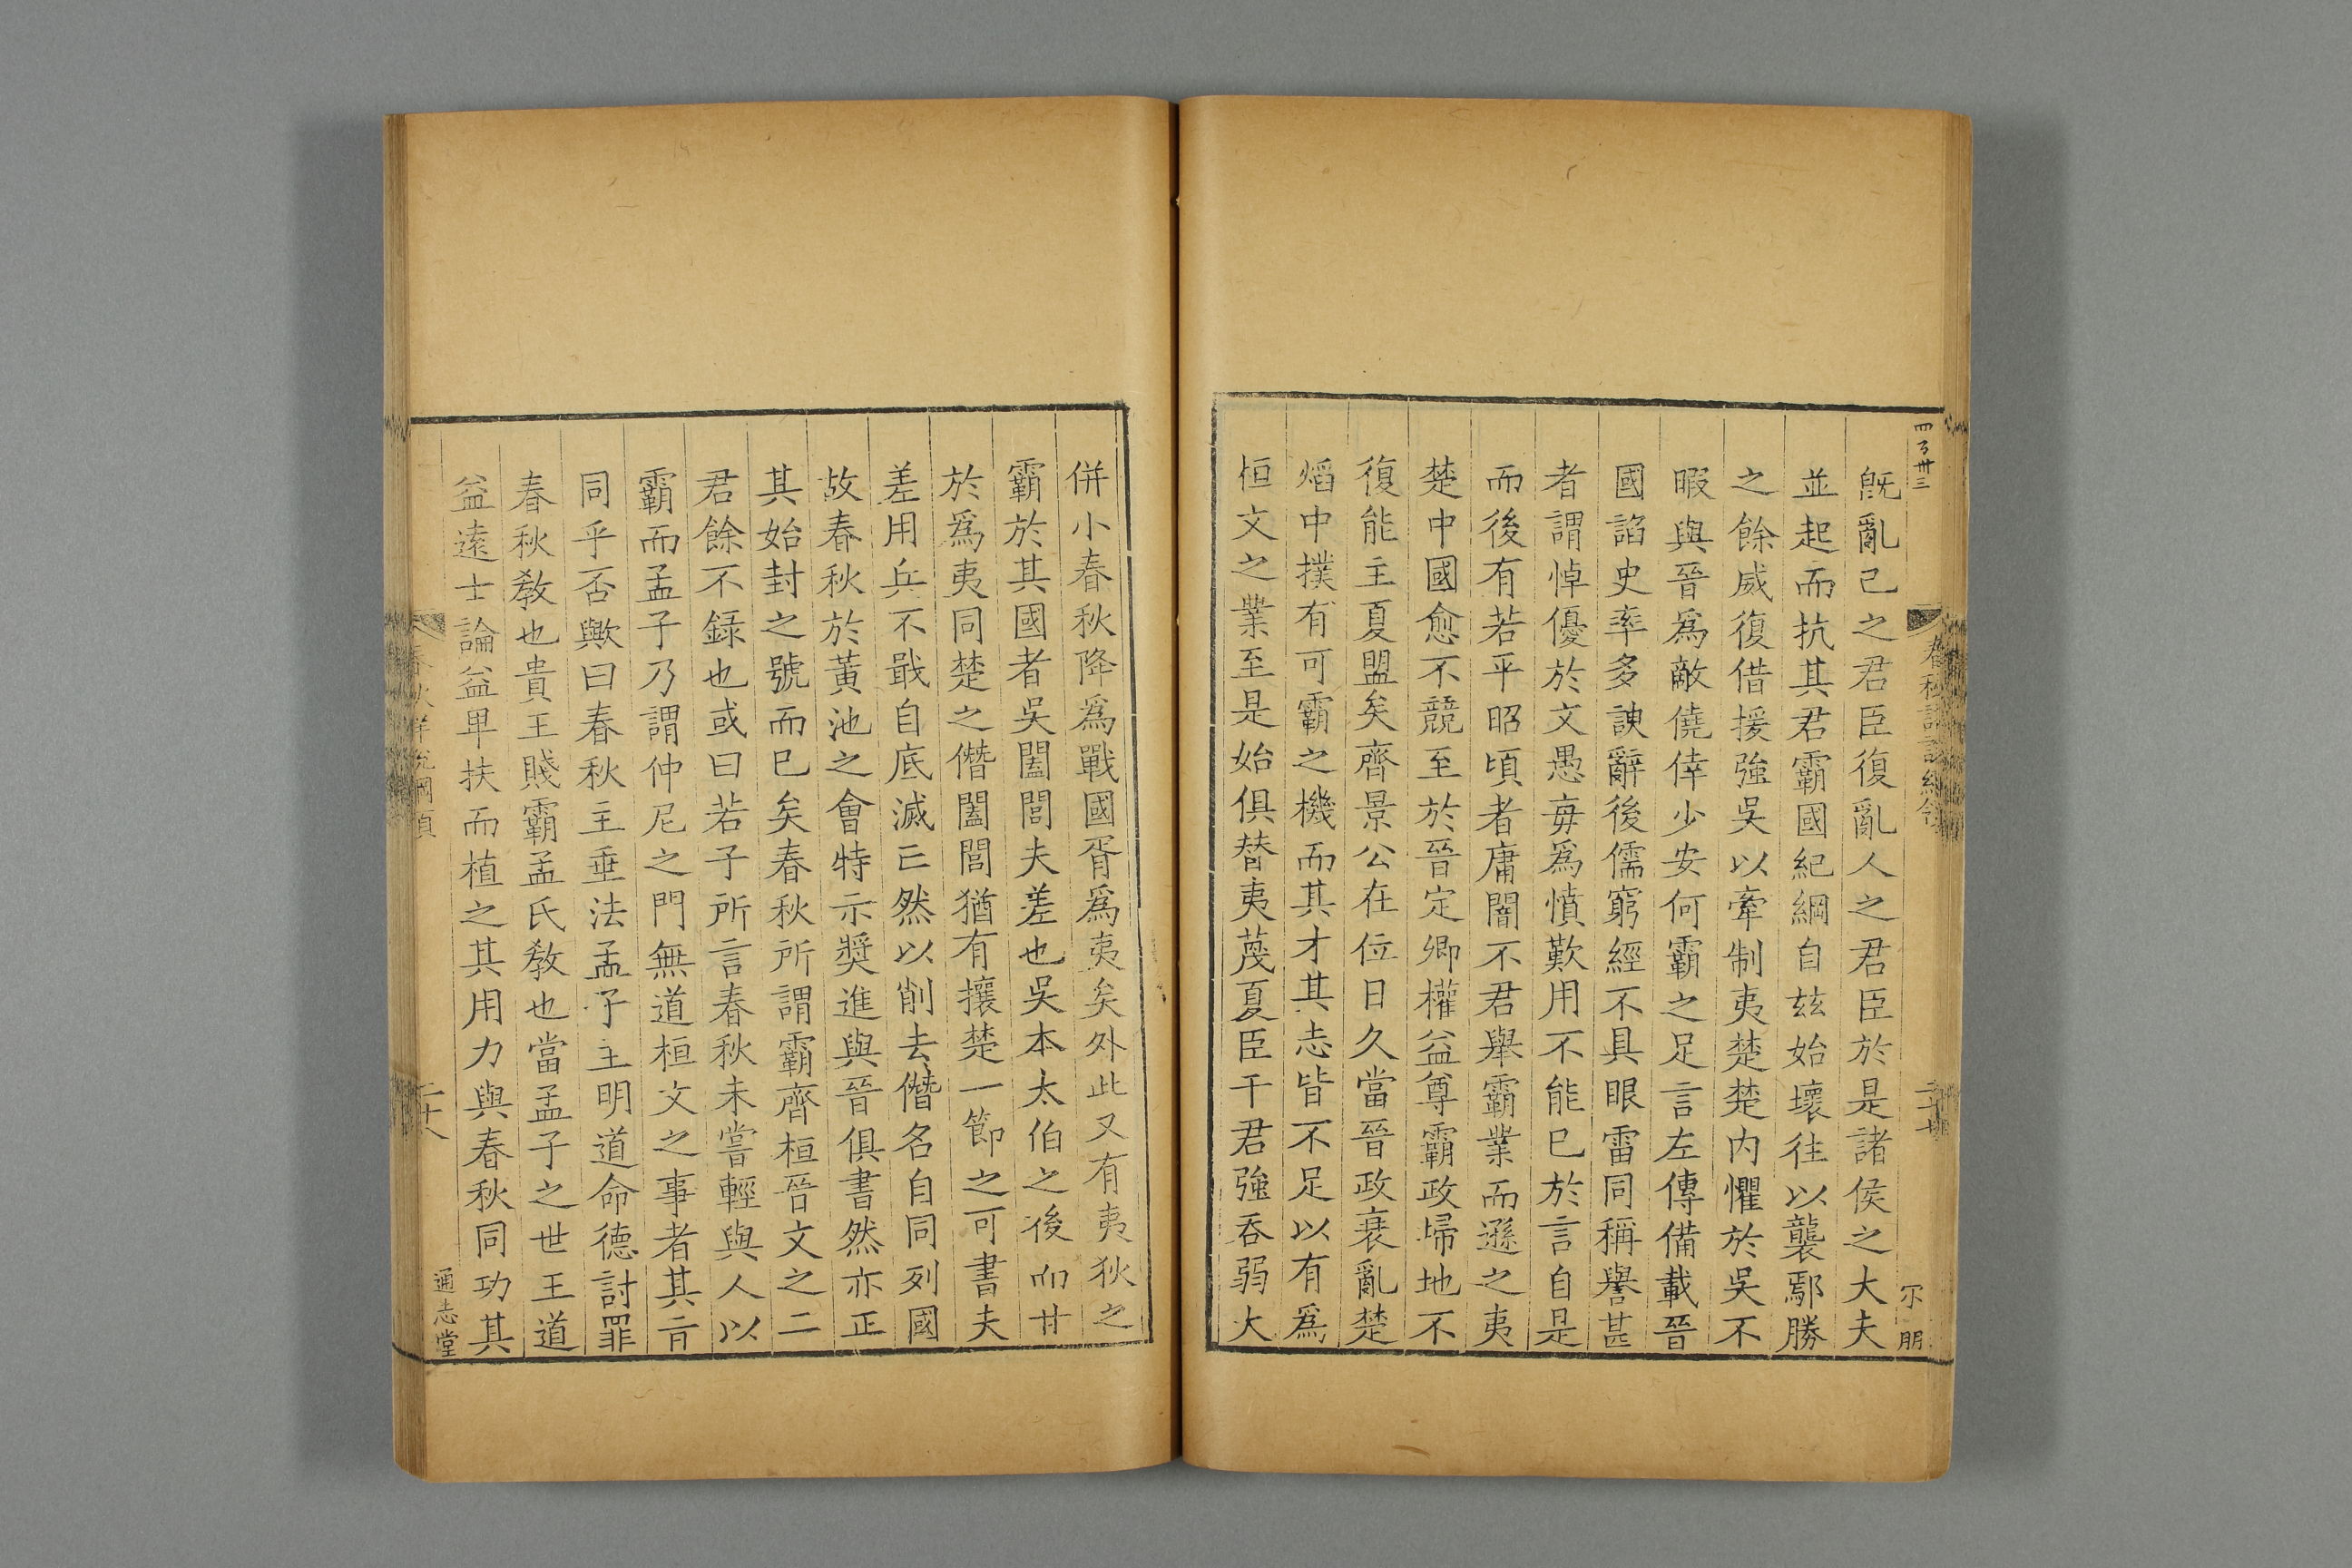 既亂己之君臣復亂人之君臣於是諸侯之大夫
並起而抗其君霸國紀綱自玆始壞往以襲鄢勝
之餘威復借援強吳以牽制夷楚楚内懼於吳不
暇與晉爲敵僥倖少安何霸之足言左傳備載晉
國諂史率多諛辭後儒窮經不具眼雷同稱譽甚
者謂悼優於文愚毎爲憤歎用不能已於言自是
而後有若平昭頃者庸闇不君舉霸業而遜之夷
楚中國愈不競至於晉定卿權益尊霸政埽地不
復能主夏盟矣齊景公在位日久當晉政衰亂楚
熖中撲有可霸之機而其才其志皆不足以有爲
桓文之業至是始俱替夷蔑夏臣干君強吞弱大
併小春秋降爲戰國胥爲夷矣外此又有夷狄之
霸於其國者吳闔閭夫差也吳本太伯之後而甘
於爲夷同楚之僭闔閭猶有攘楚一節之可書夫
差用兵不戢自底滅亡然以削去僭名自同列國
故春秋於黃池之會特示奬進與晉俱書然亦正
其始封之號而已矣春秋所謂霸齊桓晉文之二
君餘不録也或曰若子所言春秋未嘗輕與人以
霸而孟子乃謂仲尼之門無道桓文之事者其㫖
同乎否歟曰春秋主垂法孟子主明道命德討罪
春秋教也貴王賤霸孟氏教也當孟子之世王道
益遠士論益卑扶而植之其用力與春秋同功其
春秋詳說綱領
二十八
通志堂